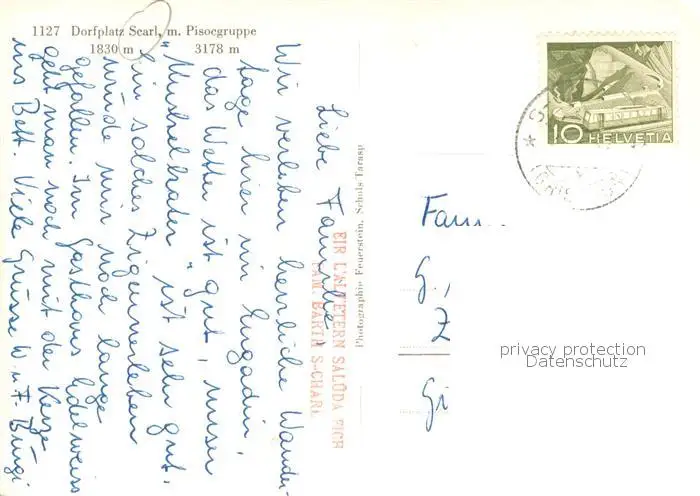 1127 Dorfplatz Scarl, m. Pisocgruppe
1830 m 3178 m
Liebe Familie,
Wir verleben herrliche Wander-
tage hier im Engadin,
das Wetter ist gut, unser
"Muskelkater" ist sehr gut.
Ein solches Zigeunerleben
würde mir noch lange
gefallen. Im Gasthaus Edelweiss
geht man noch mit der Kerze
ins Bett. Viele Grüsse W. u. F. Bürgi
EIR L'ALVETERN SALÜDA
FAM. BARTH S-CHARL
Photographie Feuerstein, Schuls-Tarasp
10 HELVETIA
Fam..
G.,
Z
Gi
privacy protection
Datenschutz